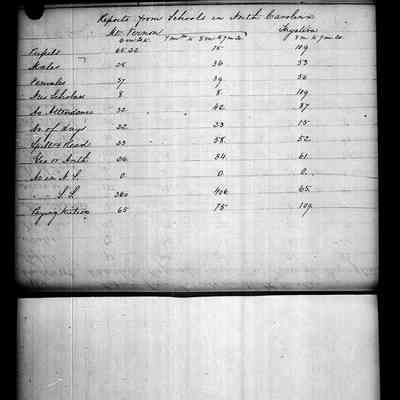 Reports from Schools in North Carolina
Mt. Vernon
Pupils 65 75 109
Males 28 36 53
Females 37 39 56
New Scholars 8 8 109
Av. Attendance 32 42 87
No of Days 22 23 15
Spell & Read 33 58 52
Geo or Arith 26 34 61
No in N. S. 0 0 0
S. S. 380 406 65
Paying tuition 65 75 109